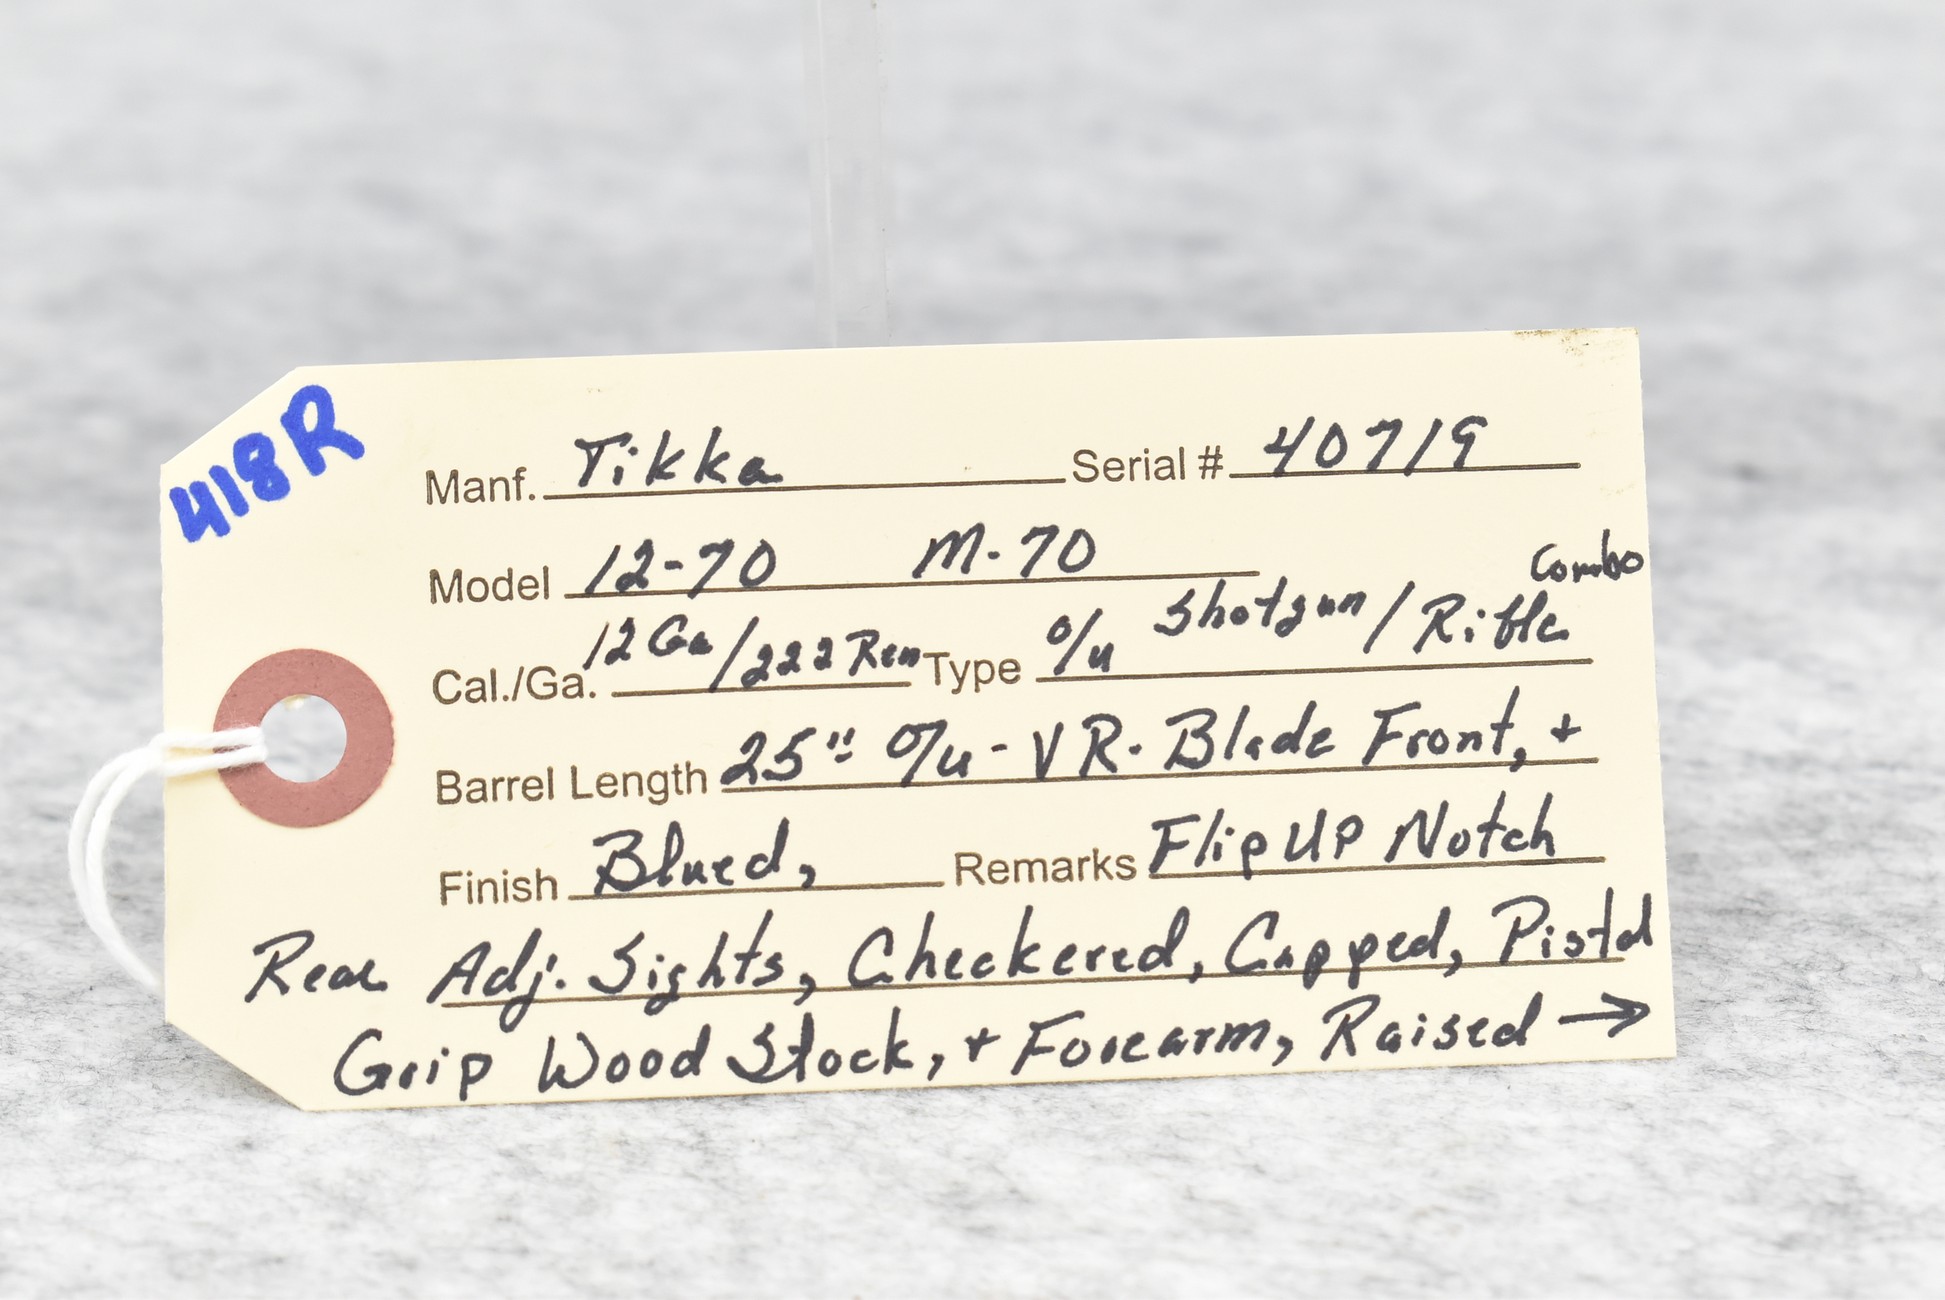 418R
Manf. Tikka Serial # 40719
Model 12-70 M-70
Cal./Ga. 12 Ga/222 Rem Type O/u Shotgun/Rifle Combo
Barrel Length 25" O/u - VR. Blade Front, +
Finish Blued, Remarks Flip UP Notch
Rear Adj. Sights, Checkered, Capped, Pistol
Grip Wood Stock, + Forearm, Raised →